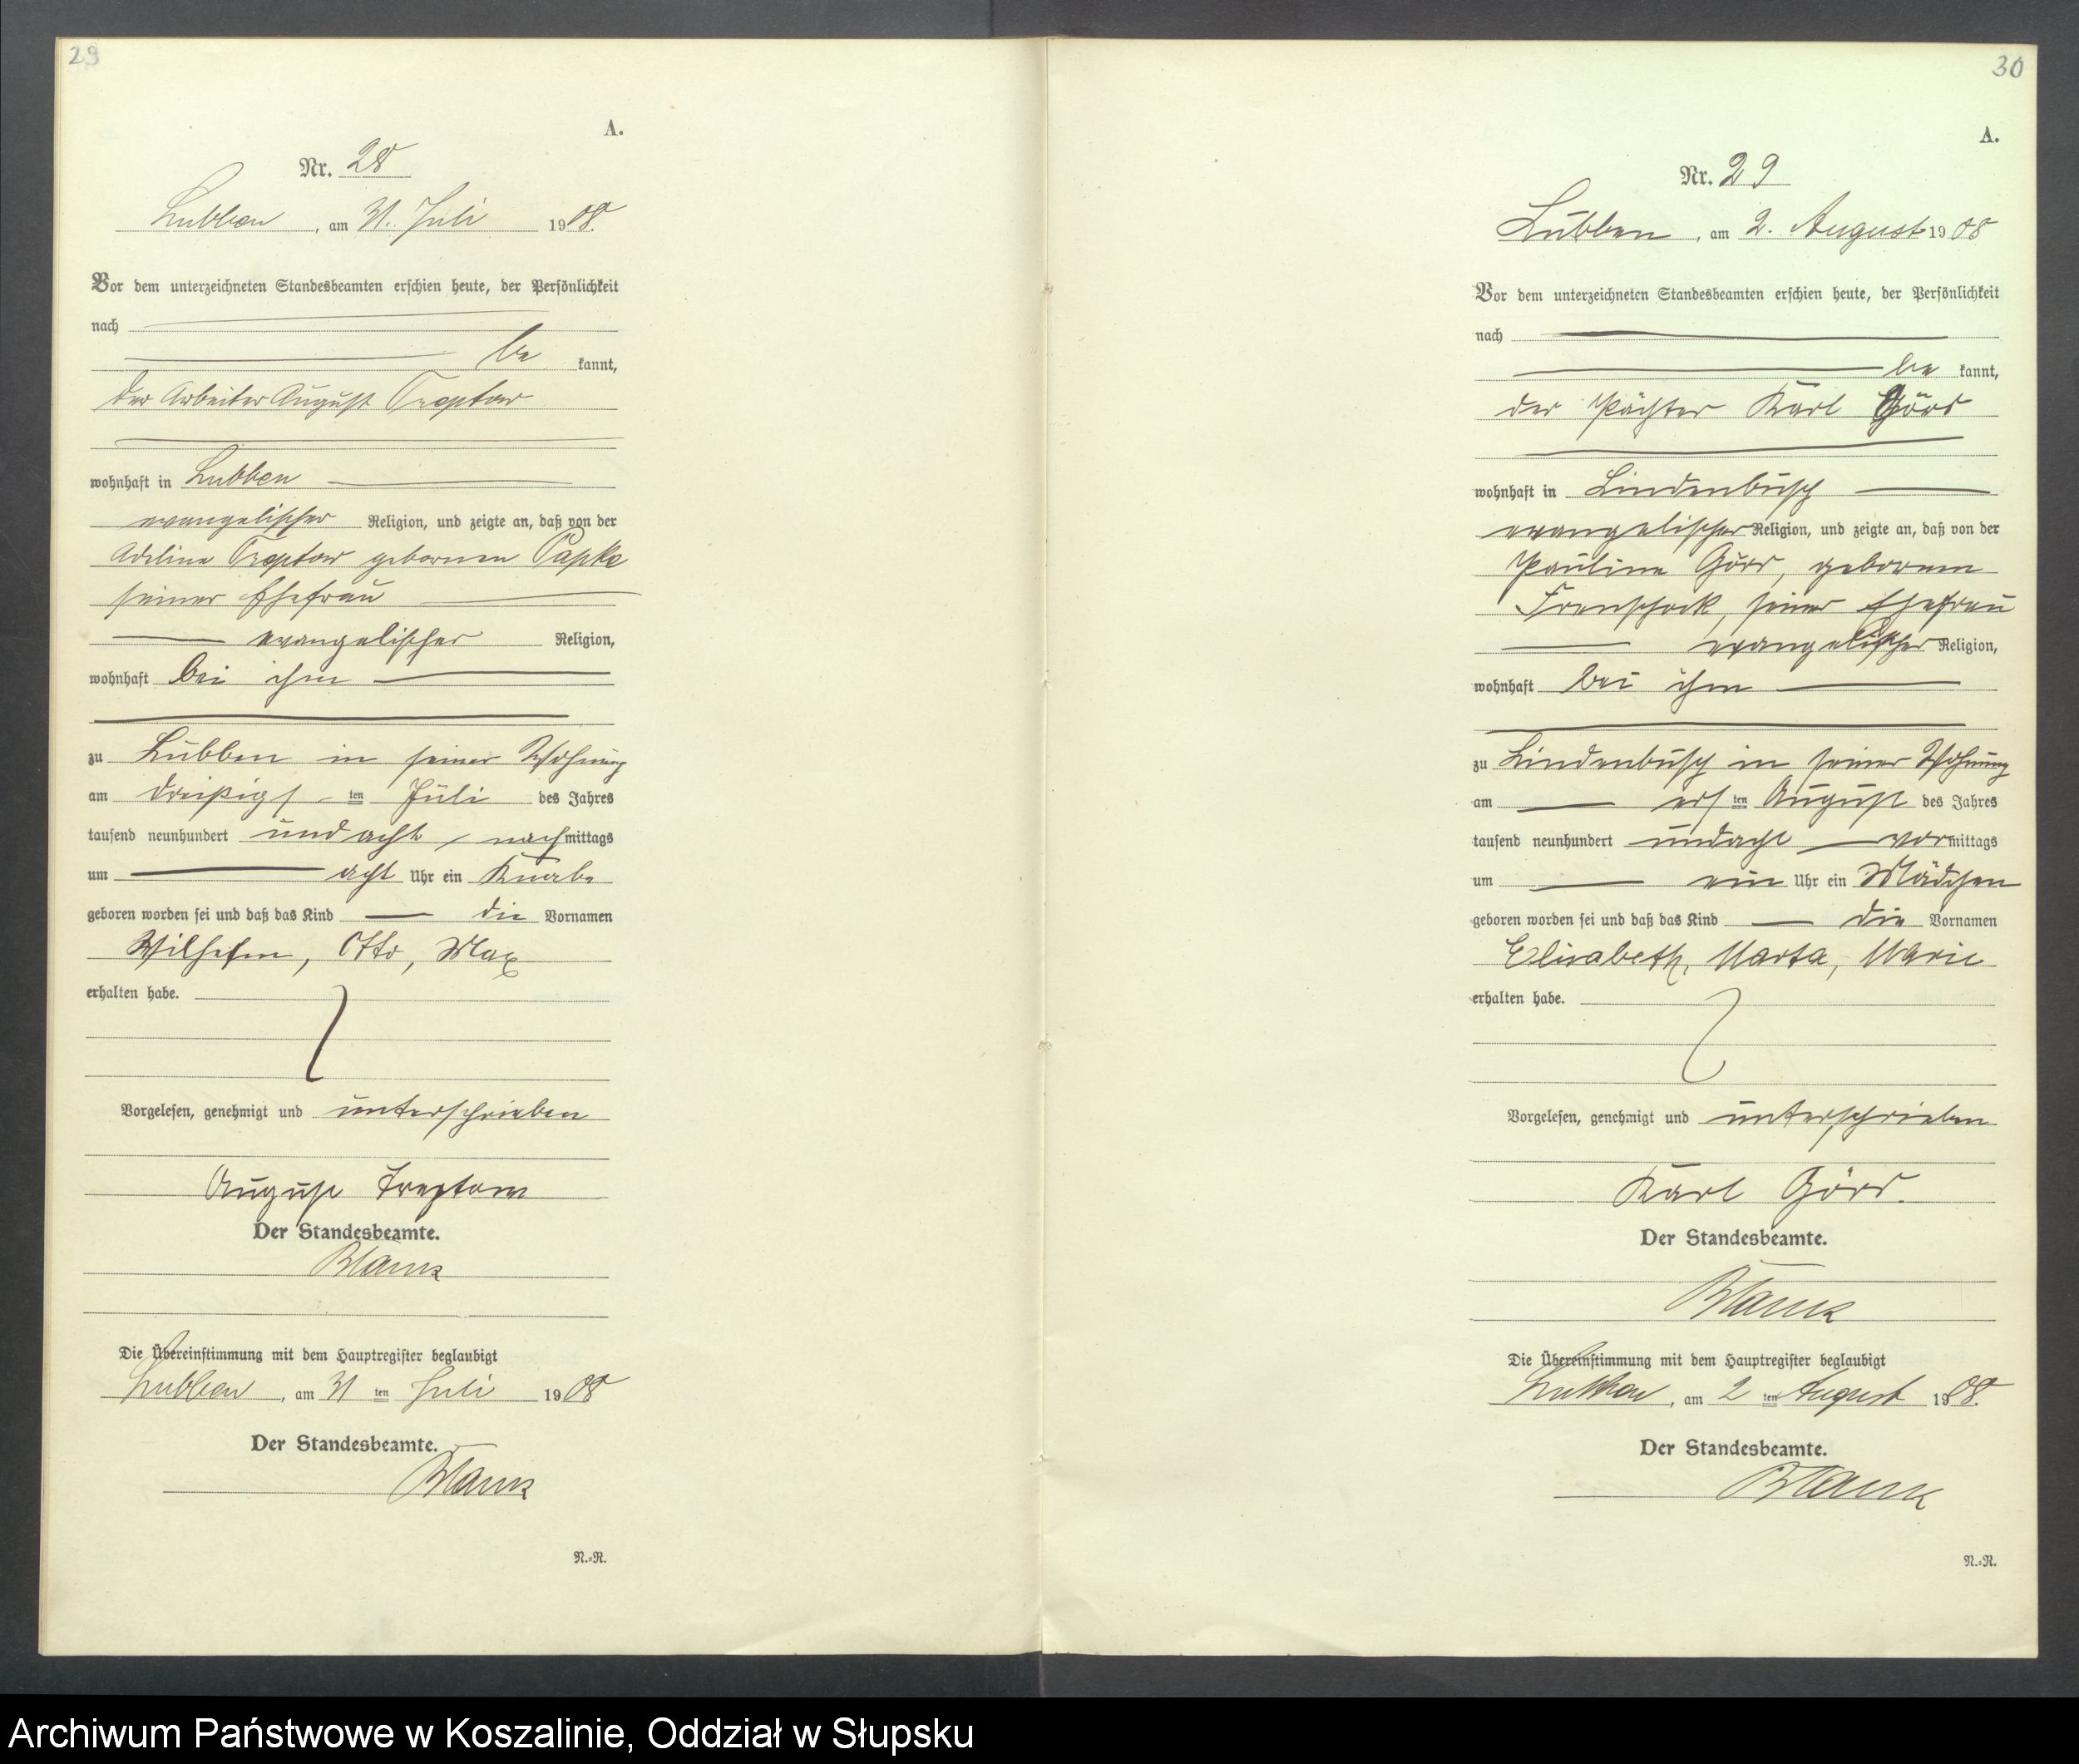 29
A.
Nr. 28
Lubben, am 31. Juli 1908.
Vor dem unterzeichneten Standesbeamten erschien heute, der Persönlichkeit
nach
be kannt,
der Arbeiter August Treptow
wohnhaft in Lubben
evangelischer Religion, und zeigte an, daß von der
Adeline Treptow gebornen Papke
seiner Ehefrau
evangelischer Religion,
wohnhaft bei ihm
zu Lubben in seiner Wohnung
am dreißigsten Juli des Jahres
tausend neunhundert und acht nachmittags
um acht Uhr ein Knabe
geboren worden sei und daß das Kind die Vornamen
Wilhelm, Otto, Max
erhalten habe.
Vorgelesen, genehmigt und unterschrieben
August Treptow
Der Standesbeamte.
Blank
Die Übereinstimmung mit dem Hauptregister beglaubigt
Lubben, am 31 ten Juli 1908
Der Standesbeamte.
Blank
N.=R.
30
A.
Nr. 29
Lubben, am 2. August 1908
Vor dem unterzeichneten Standesbeamten erschien heute, der Persönlichkeit
nach
be kannt,
der Pächter Karl Görs
wohnhaft in Lindenbusch
evangelischer Religion, und zeigte an, daß von der
Pauline Görs, geborenen
seiner Ehefrau
evangelischer Religion,
wohnhaft bei ihm
zu Lindenbusch in seiner Wohnung
am ersten August des Jahres
tausend neunhundert und acht vormittags
um ein Uhr ein Mädchen
geboren worden sei und daß das Kind die Vornamen
Elisabeth, Marta, Marie
erhalten habe.
Vorgelesen, genehmigt und unterschrieben
Karl Görs.
Der Standesbeamte.
Blank
Die Übereinstimmung mit dem Hauptregister beglaubigt
Lubben, am 2 ten August 1908.
Der Standesbeamte.
Blank
N.=R.
Archiwum Państwowe w Koszalinie, Oddział w Słupsku